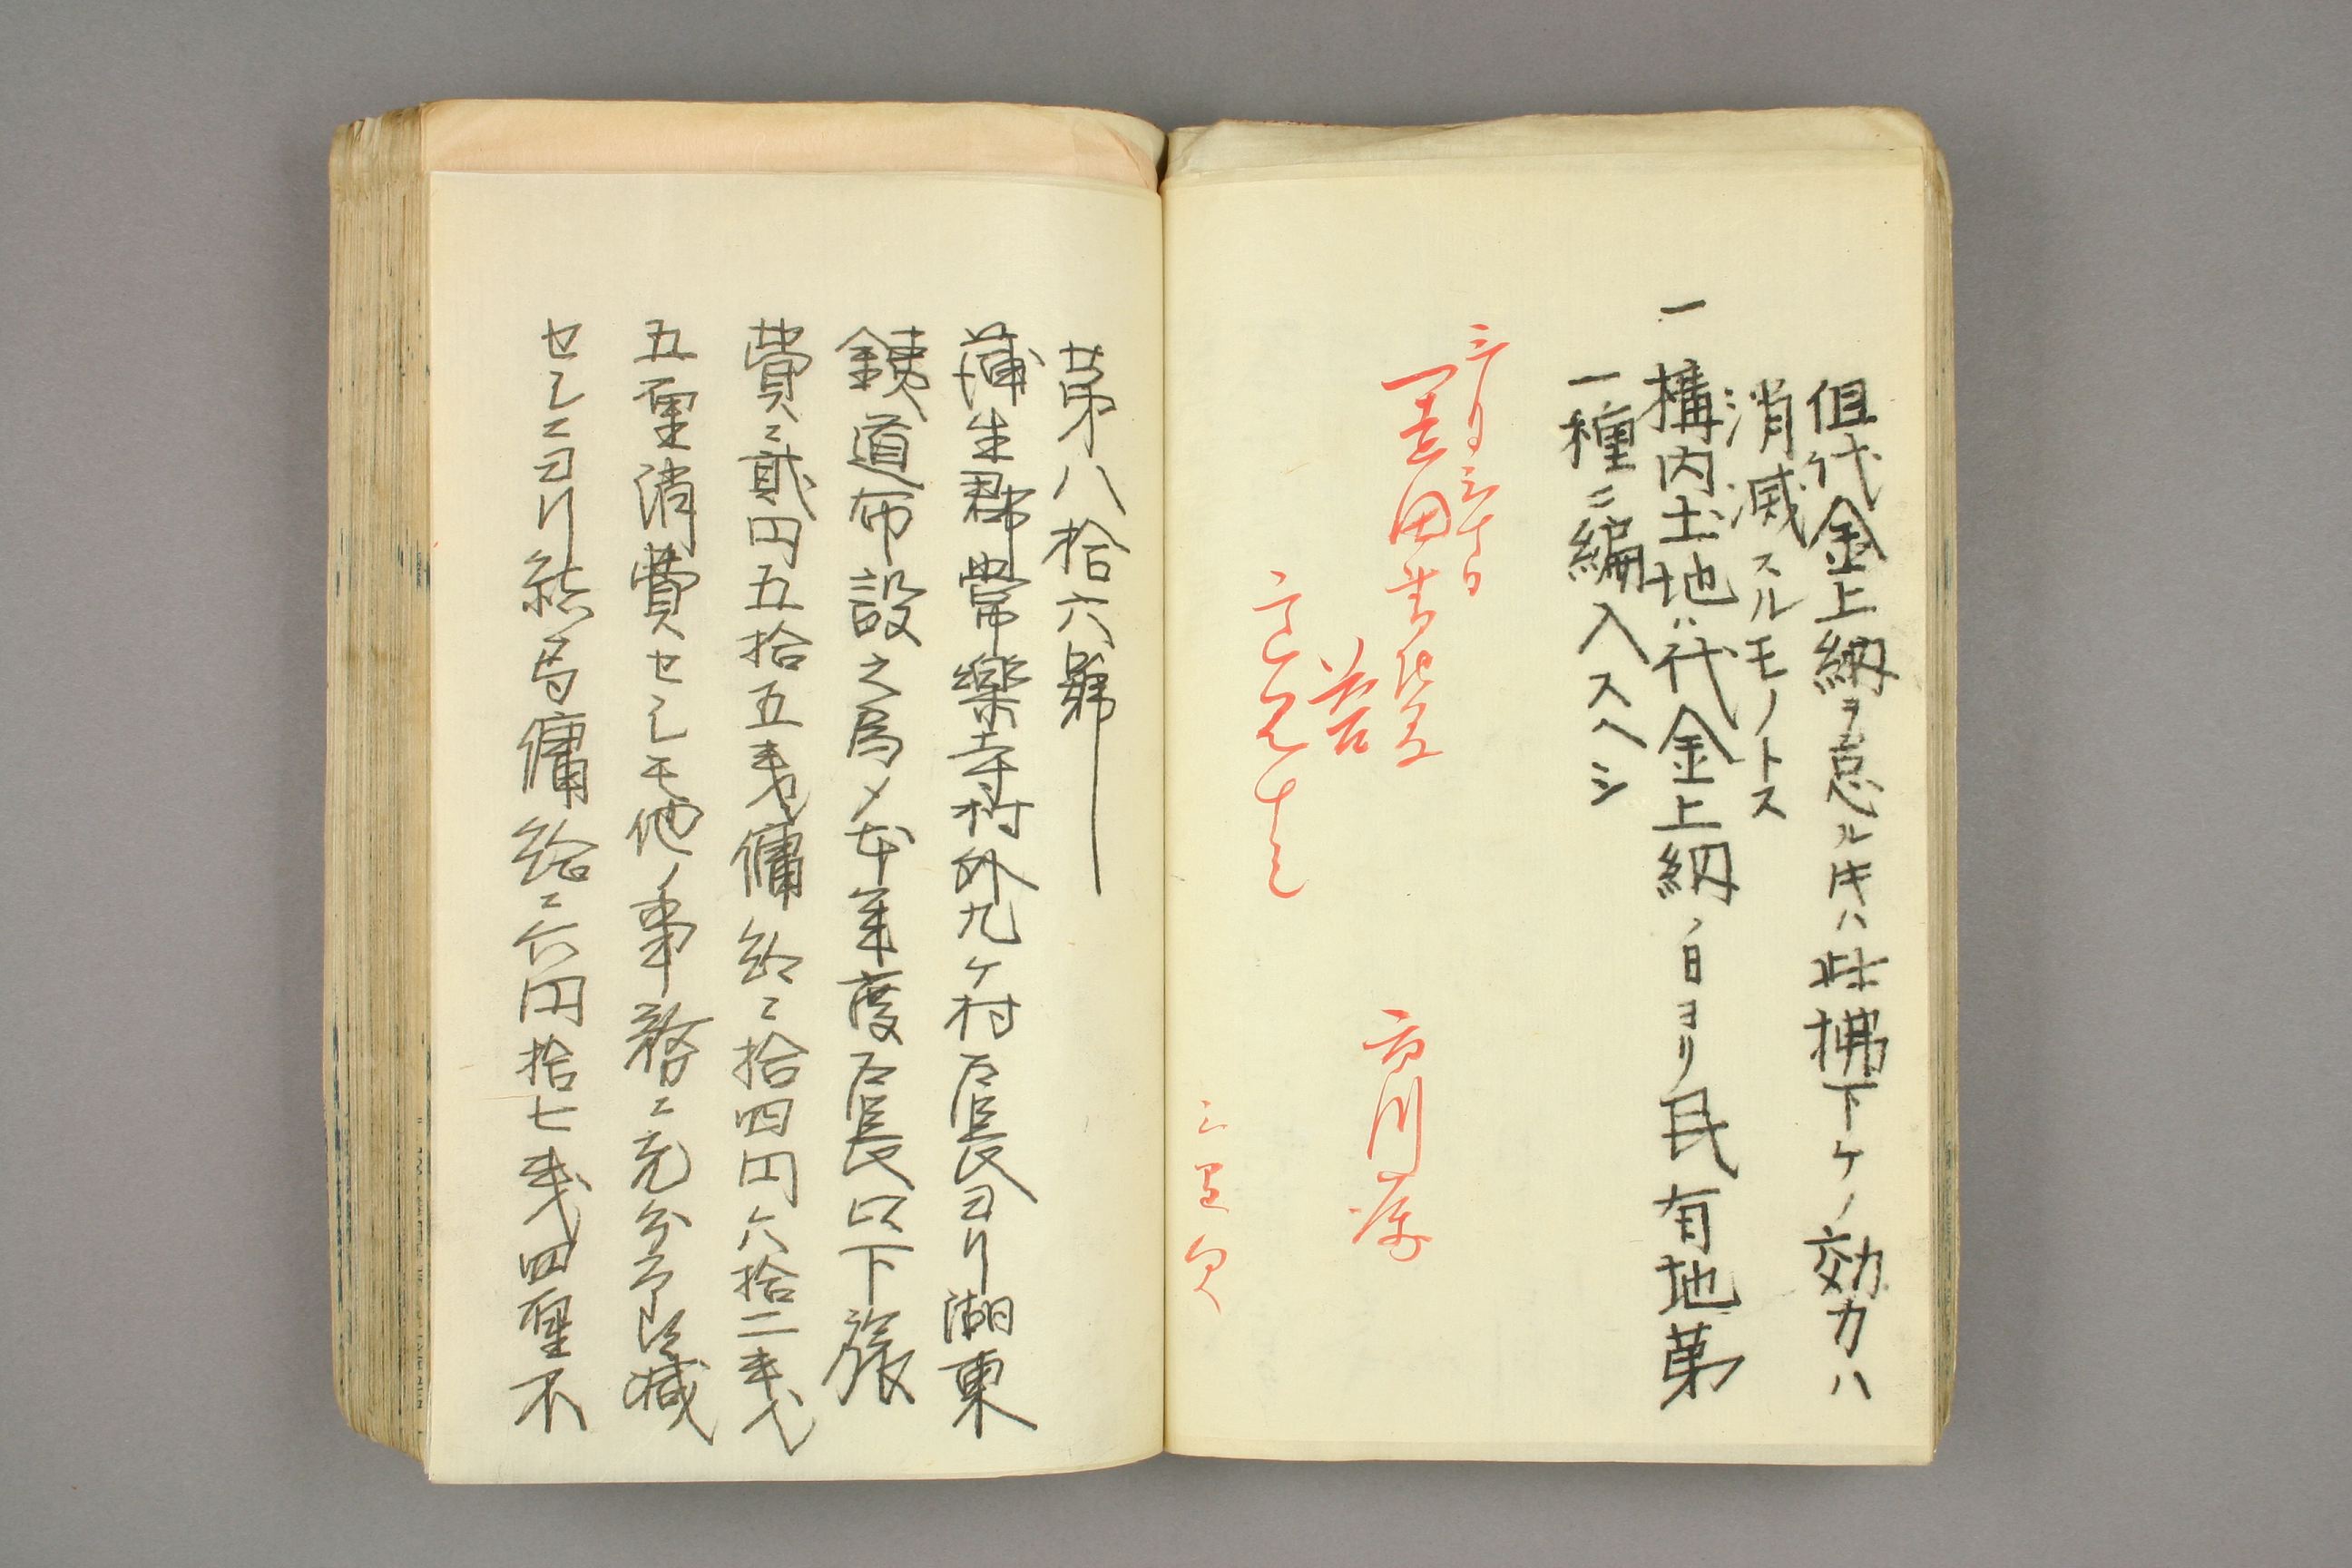 但代金上納ヲ怠ルトキハ此拂下ケノ効力ハ
消滅スルモノトス
一 構内土地ハ代金上納ノ日ヨリ民有地第
一種ニ編入スヘシ
三月三十日
市川属
第八拾六號
蒲生郡常樂寺村外九ケ村戸長ヨリ湖東
鉄道布設之為メ本年度戸長以下旅
費ニ貳円五拾五戋傭給ニ拾四円六拾二戋
五厘消費セシモ他ノ事務ニ充分予減
セシニヨリ結局傭給ニ六円拾七戋四厘不